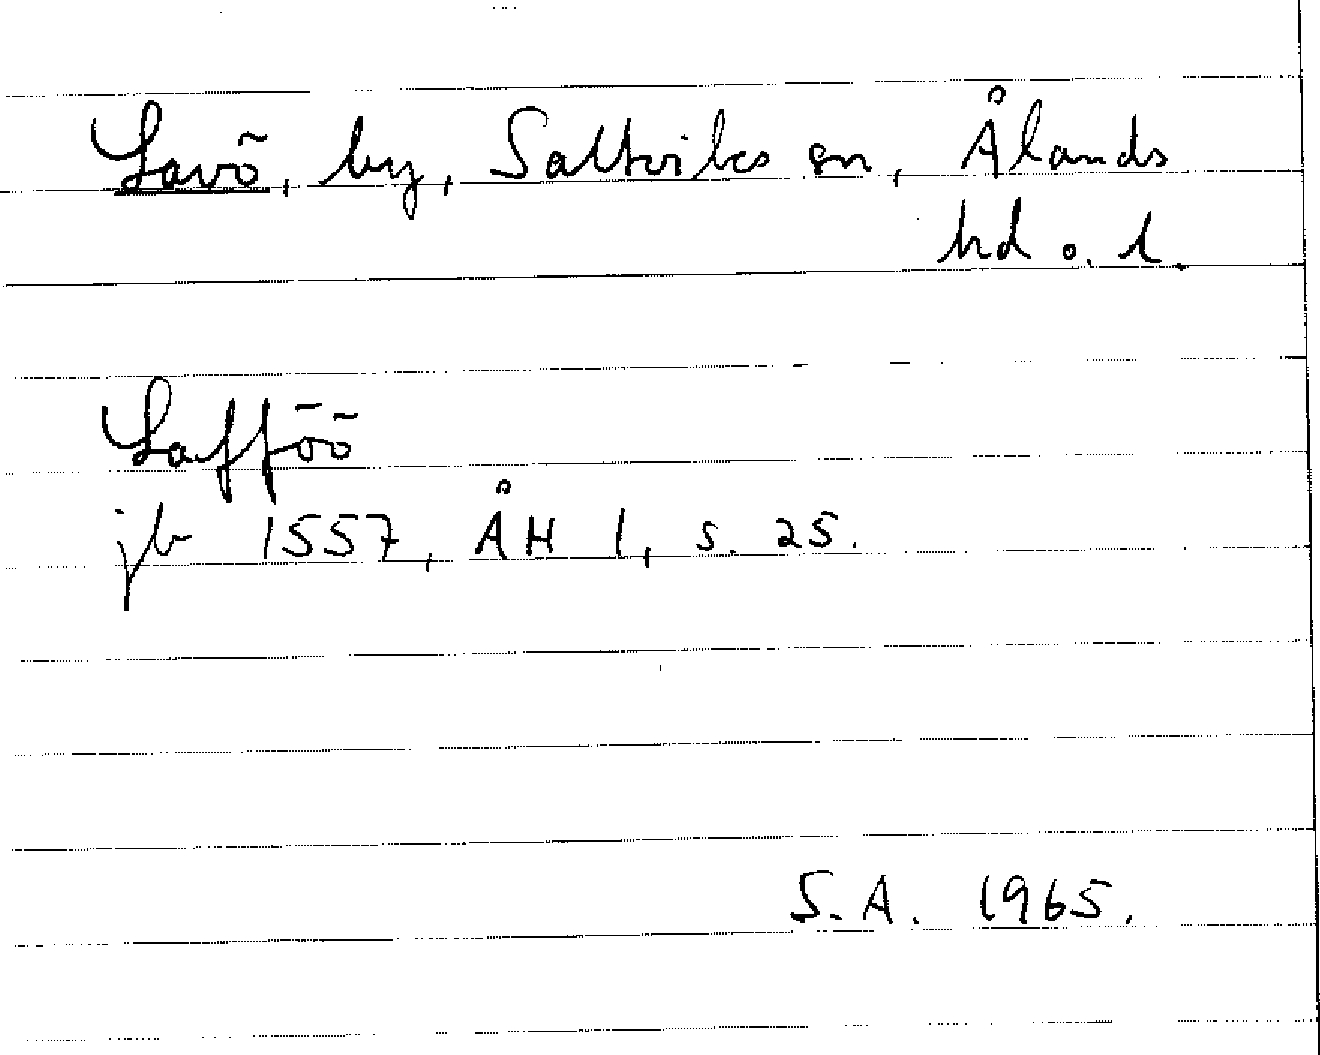 Lavö, by, Saltviks sn, Ålands
hd o. l.
Lafföö
jb 1557, ÅH 1, s. 25.
S.A. 1965.